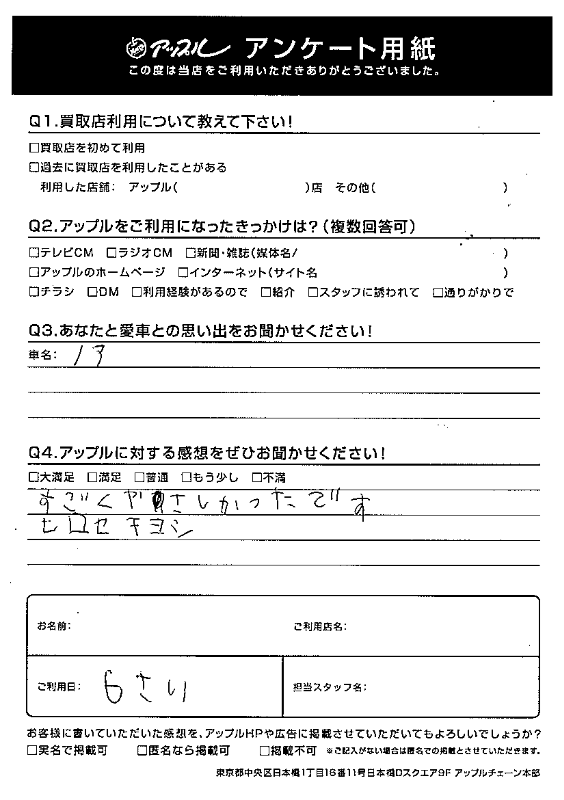 アップル アンケート用紙
この度は当店をご利用いただきありがとうございました。
Q1.買取店利用について教えて下さい!
□買取店を初めて利用
□過去に買取店を利用したことがある
利用した店舗: アップル( )店 その他( )
Q2.アップルをご利用になったきっかけは?(複数回答可)
□テレビCM □ラジオCM □新聞・雑誌(媒体名/ )
□アップルのホームページ □インターネット(サイト名 )
□チラシ □DM □利用経験があるので □紹介 □スタッフに誘われて □通りがかりで
Q3.あなたと愛車との思い出をお聞かせください!
車名:
Q4.アップルに対する感想をぜひお聞かせください!
□大満足 □満足 □普通 □もう少し □不満
すごくやさしかったです
ヒロセ キヨシ
お名前: ご利用店名:
ご利用日: 6さい 担当スタッフ名:
お客様に書いていただいた感想を、アップルHPや広告に掲載させていただいてもよろしいでしょうか?
□実名で掲載可 □匿名なら掲載可 □掲載不可 ※ご記入がない場合は匿名での掲載とさせていただきます。
東京都中央区日本橋1丁目16番11号日本橋Dスクエア9F アップルチェーン本部